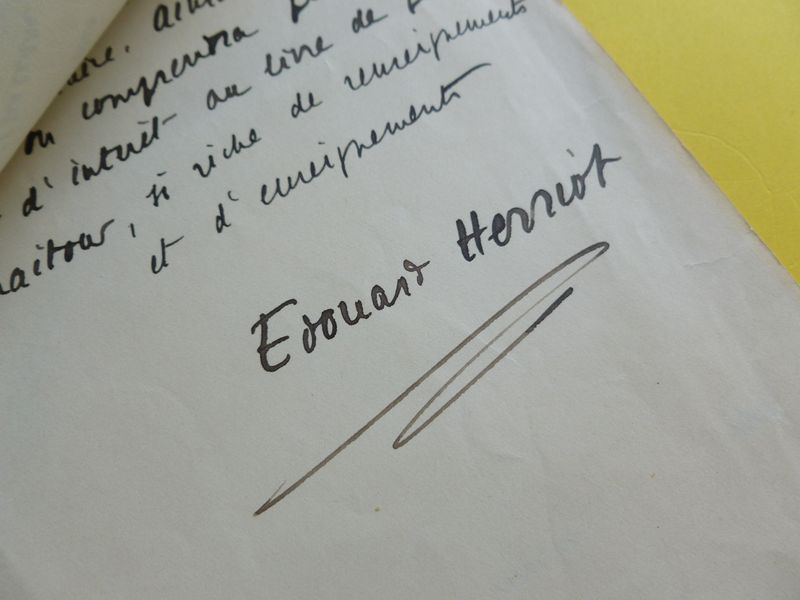 on comprendra
d'intérêt au livre de
si riche de renseignements
et d'enseignements
Edouard Herriot